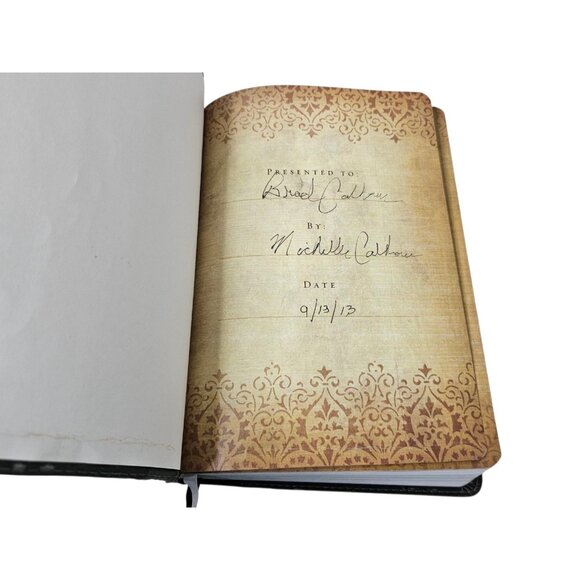 PRESENTED TO:
Brad Calhoun
BY:
Michelle Calhoun
DATE
9/13/13